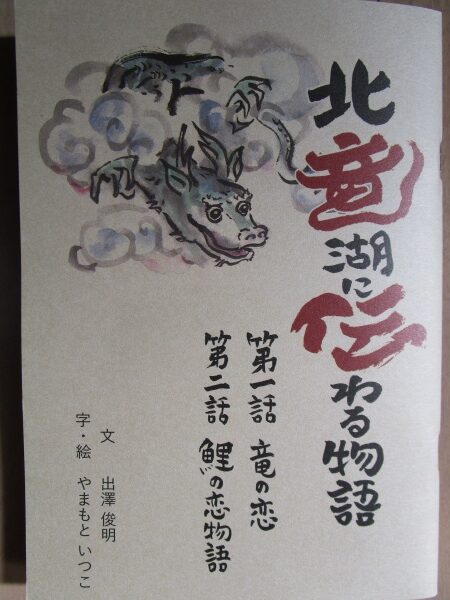 北竜湖に伝わる物語
第一話 竜の恋
第二話 鯉の恋物語
文 出澤 俊明
字・絵 やまもと いつこ